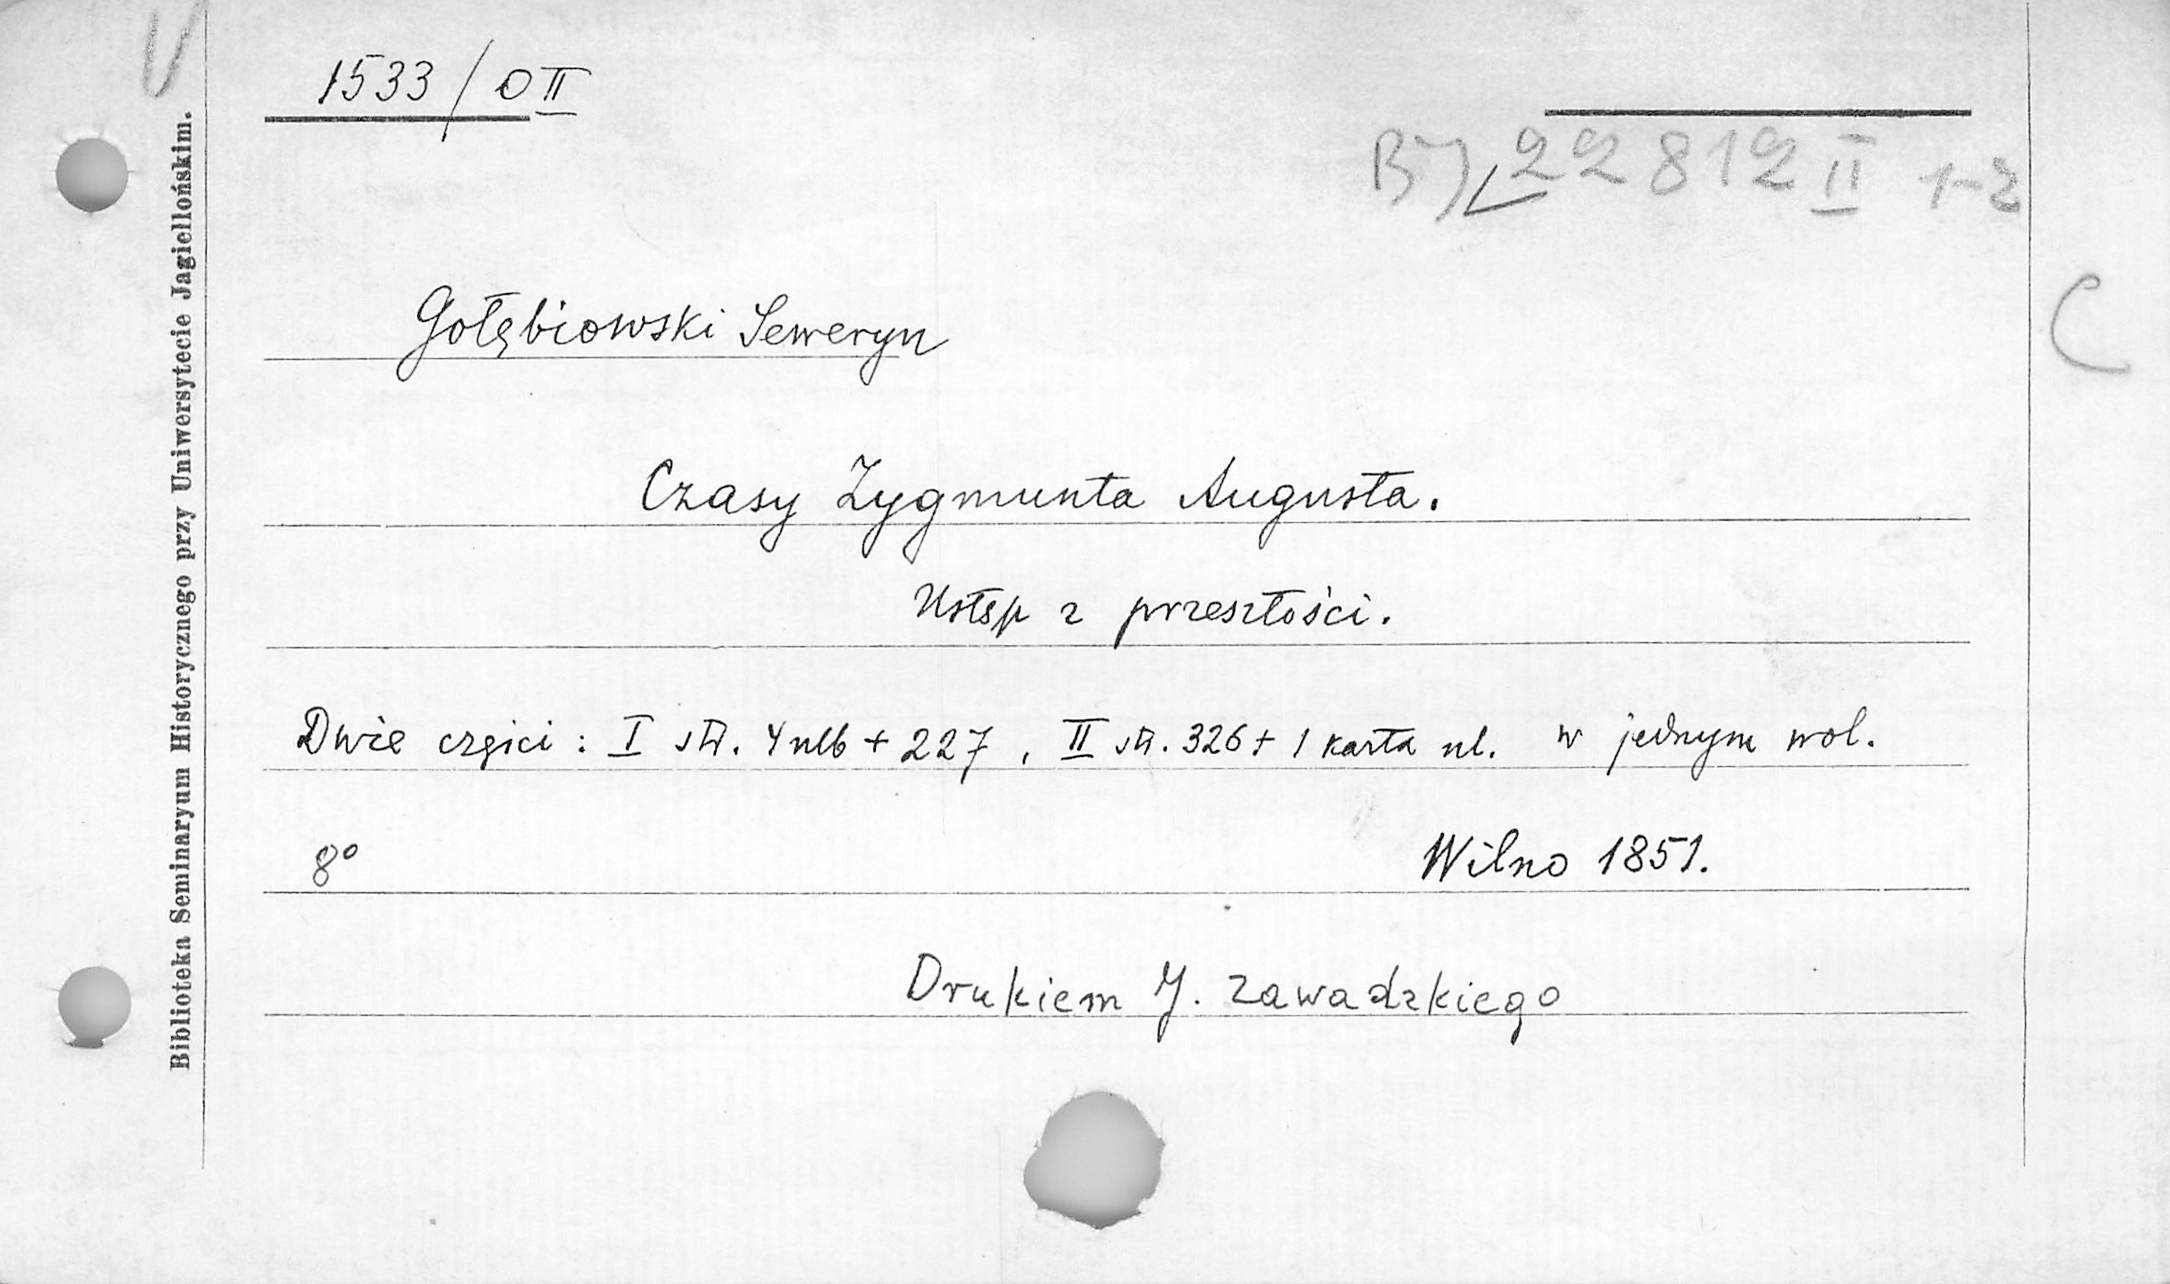 V
1533/OII
B) 22812 II 1-2
C
Gołębiowski Seweryn
Czasy Zygmunta Augusta.
Ustęp z przeszłości.
Dwie części: I str. 4 nlb + 227, II str. 326 + 1 karta nl. w jednym wol.
8° Wilno 1851.
Drukiem J. Zawadzkiego
Biblioteka Seminaryum Historycznego przy Uniwersytecie Jagiellońskim.